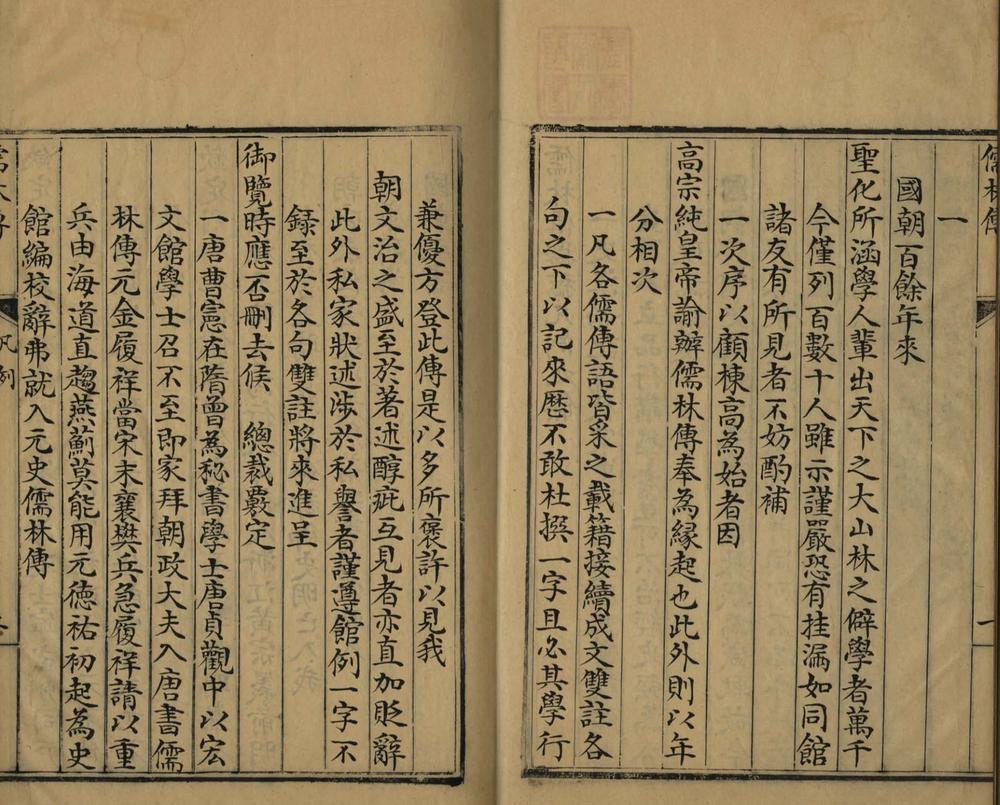 儒林傳
一
國朝百餘年來
聖化所涵學人輩出天下之大山林之僻學者萬千
今僅列百數十人雖示謹嚴恐有挂漏如同館
諸友有所見者不妨酌補
一次序以顧棟高為始者因
高宗純皇帝諭辦儒林傳奉為緣起也此外則以年
分相次
一凡各儒傳語皆采之載籍接續成文雙註各
句之下以記來歷不敢杜撰一字且必其學行
兼優方登此傳是以多所褒許以見我
朝文治之盛至於著述醇疵互見者亦直加貶辭
此外私家狀述涉於私譽者謹遵館例一字不
録至於各句雙註將來進呈
御覽時應否刪去候 總裁覈定
一唐曹憲在隋曾為秘書學士唐貞觀中以宏
文館學士召不至即家拜朝政大夫入唐書儒
林傳元金履祥當宋末襄樊兵急履祥請以重
兵由海道直趨燕薊莫能用元徳祐初起為史
館編校辭弗就入元史儒林傳
凡例